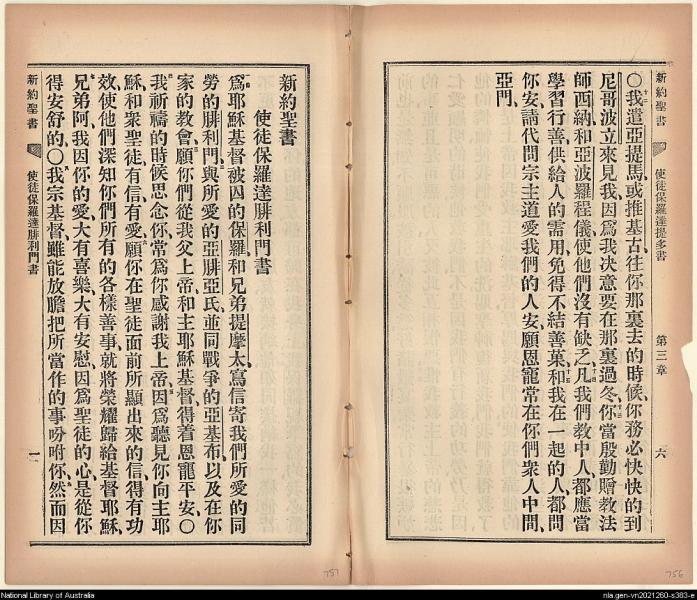 新約聖書
使徒保羅達提多書
第三章
六
○我遣亞提馬、或推基古、往你那裏去的時候、你務必快快的到
尼哥波立來見我、因爲我决意要在那裏過冬、你當殷勤贈教法
師西納、和亞波羅程儀、使他們沒有缺乏、凡我們教中人、都應當
學習行善、供給人的需用、免得不結善菓、和我在一起的人、都問
你安、請代問宗主道愛我們的人安、願恩寵常在你們衆人中間、
亞門、
新約聖書
使徒保羅達腓利門書
爲耶穌基督被囚的保羅、和兄弟提摩太、寫信寄我們所愛的同
勞的腓利門、與所愛的亞腓亞氏、並同戰爭的亞基布、以及在你
家的教會、願你們從我父上帝和主耶穌基督、得着恩寵平安○
我祈禱的時候思念你、常爲你感謝我上帝、因爲聽見你向主耶
穌和衆聖徒有信有愛、願你在聖徒面前所顯出來的信、得有功
效、使他們深知你們所有的各樣善事、就將榮耀歸給基督耶穌、
兄弟阿、我因你的愛、大有喜樂、大有安慰、因爲聖徒的心、是從你
得安舒的、○我宗基督雖能放膽把所當作的事吩咐你、然而因
新約聖書
使徒保羅達腓利門書
一
757
756
National Library of Australia
nla.gen-vn2021260-s383-e